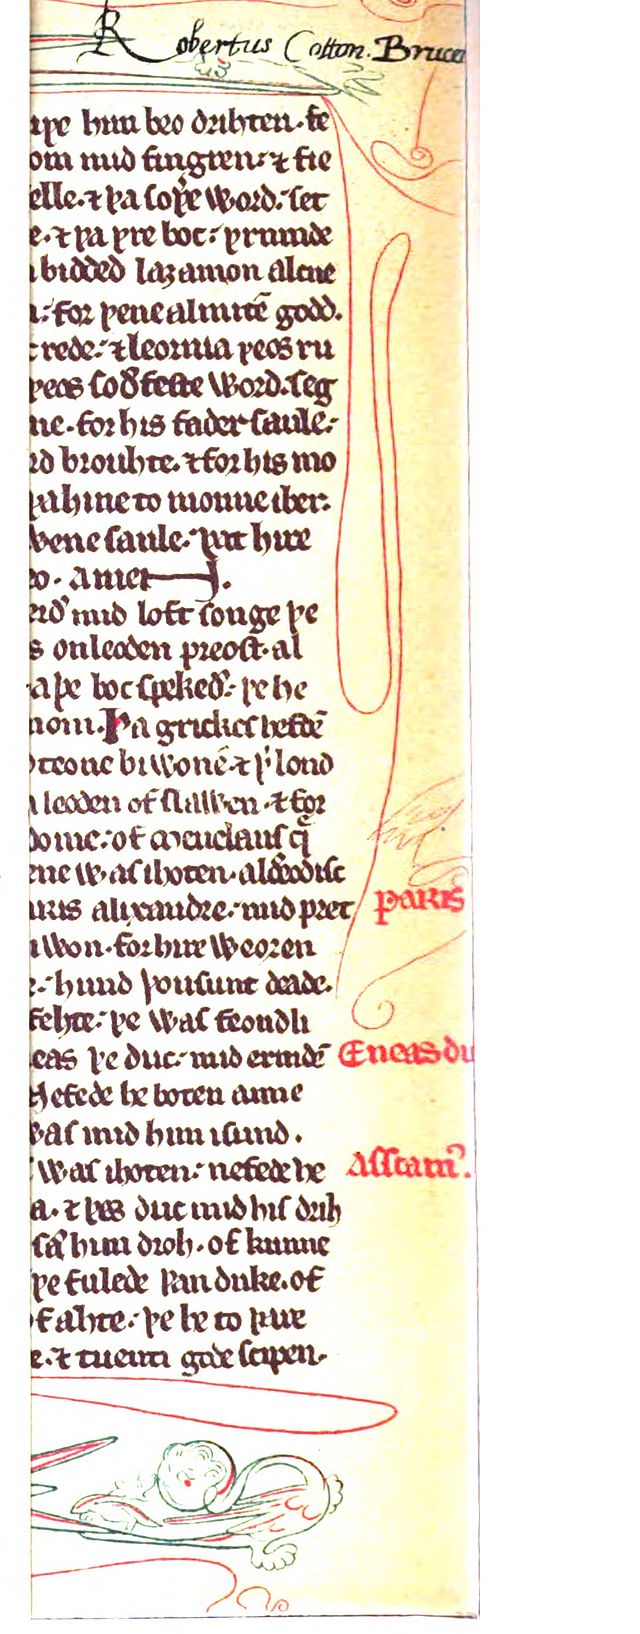 Robertus Cotton. Bruceus
him beo drihten. fe
mid fingren: ⁊ fie
elle. ⁊ þa soþe word. set
e. ⁊ þa þre boc: þrumde
bidded laȝamon alcne
for þene almitē godd.
rede. ⁊ leornia þeos ru
þeos soðfeste word. seg
ne. for his fader saule:
brouhte. ⁊ for his mo
hine to monne iber.
saule. þat hire
o. amen.
mid loft songe þe
s on leoden preost. al
boc spekeð. þe he
nom. Þa grickes hefdē
teone biwonē. ⁊ þ lond
leoden of slawen. ⁊ for
dome: of Menelaus q̄
ene was ihoten. aldeodisc
alixandre. mid pret
paris
won. for hire weoren
hund þousunt deade.
fehte: þe was feondli
eas þe duc: mid ermdē
Eneas du
Nefede he boten anne
was mid him isund.
was ihoten: nefede he
Asscani9.
a. ⁊ þes duc mid his drih
him droh. of kunne
þe fulede þan duke. of
fahte: þe he to þare
e. ⁊ tuenti gode scipen.